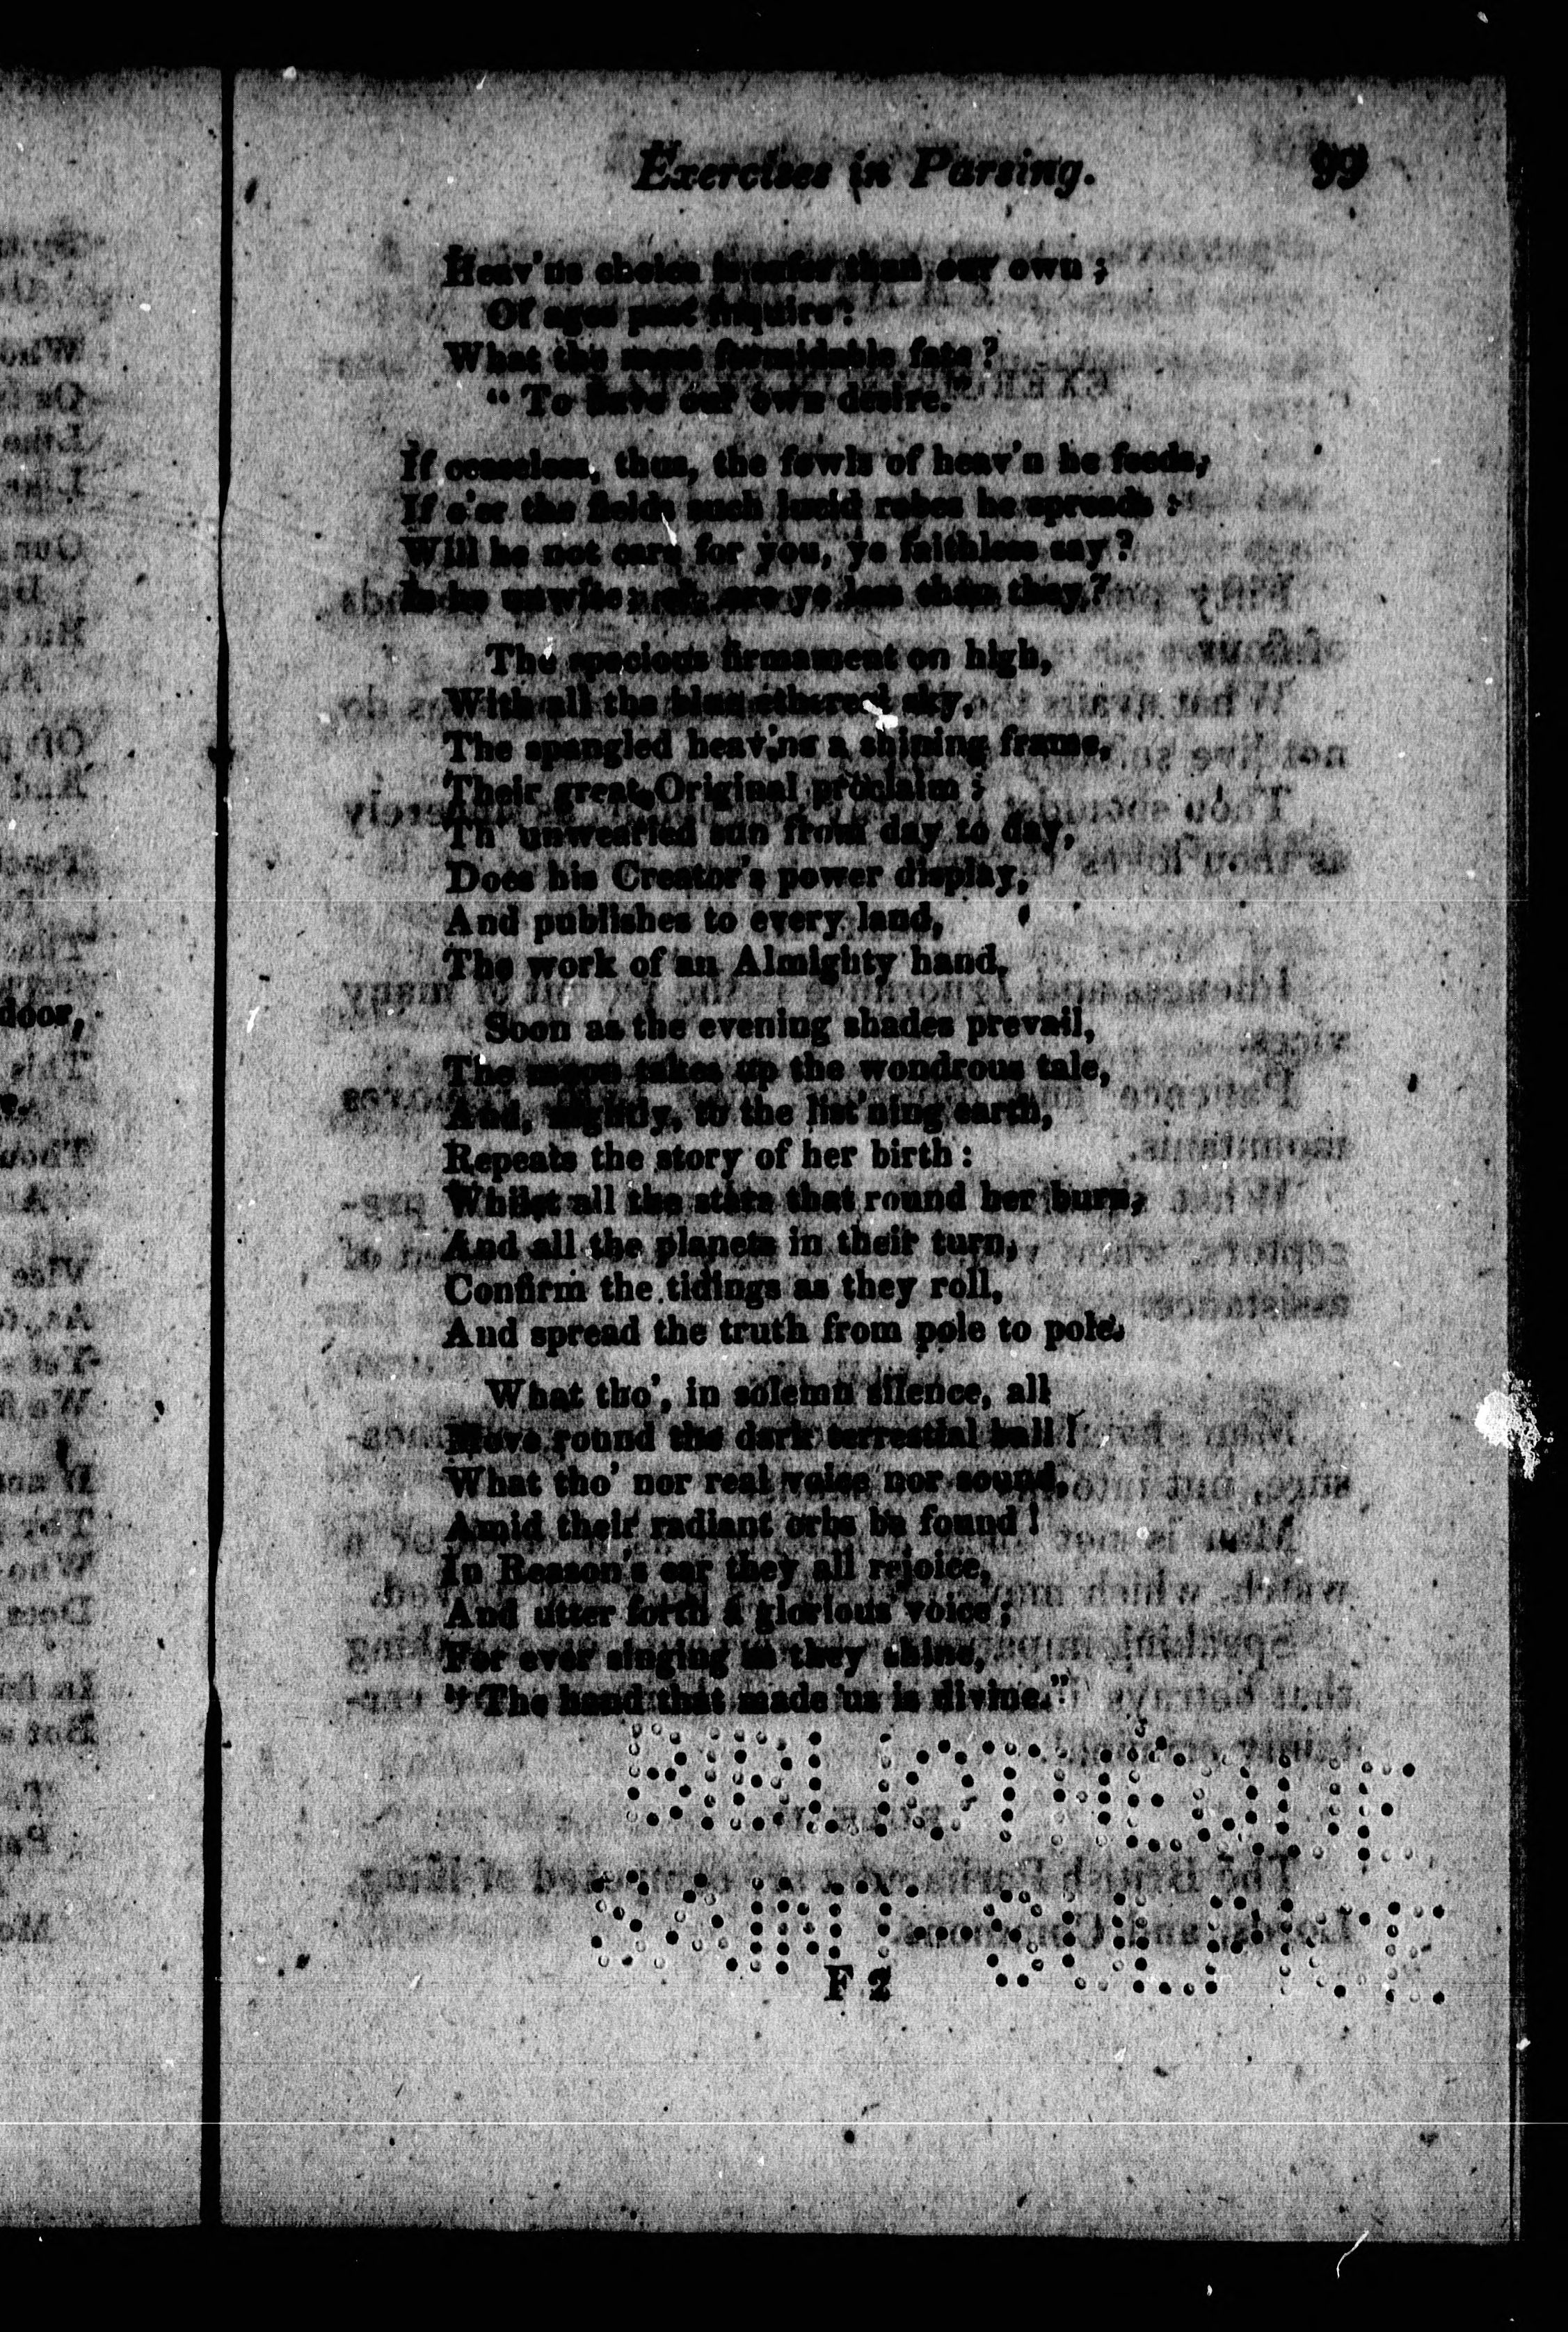 Exercises in Parsing. 99
Heav'ns choice is safer than our own ;
Of ages past inquire :
What the most formidable fate ?
“ To have our own desire.”
If ceaseless, thus, the fowls of heav'n he feeds,
If o'er the fields such lucid robes he spreads :
Will he not care for you, ye faithless say ?
Is he unwise ; or, are ye less than they ?
The spacious firmament on high,
With all the blue ethereal sky,
The spangled heav'ns a shining frame,
Their great Original proclaim ;
Th' unwearied sun from day to day,
Does his Creator's power display,
And publishes to every land,
The work of an Almighty hand.
Soon as the evening shades prevail,
The moon takes up the wondrous tale,
And, nightly, to the list'ning earth,
Repeats the story of her birth :
Whilst all the stars that round her burn,
And all the planets in their turn,
Confirm the tidings as they roll,
And spread the truth from pole to pole.
What tho', in solemn silence, all
Move round the dark terrestial ball !
What tho' nor real voice nor sound,
Amid their radiant orbs be found !
In Reason's ear they all rejoice,
And utter forth a glorious voice ;
For ever singing as they shine,
“ The hand that made us is divine.”
BIBLIOTHEQUE
SAINT-SULPICE
F 2
door,